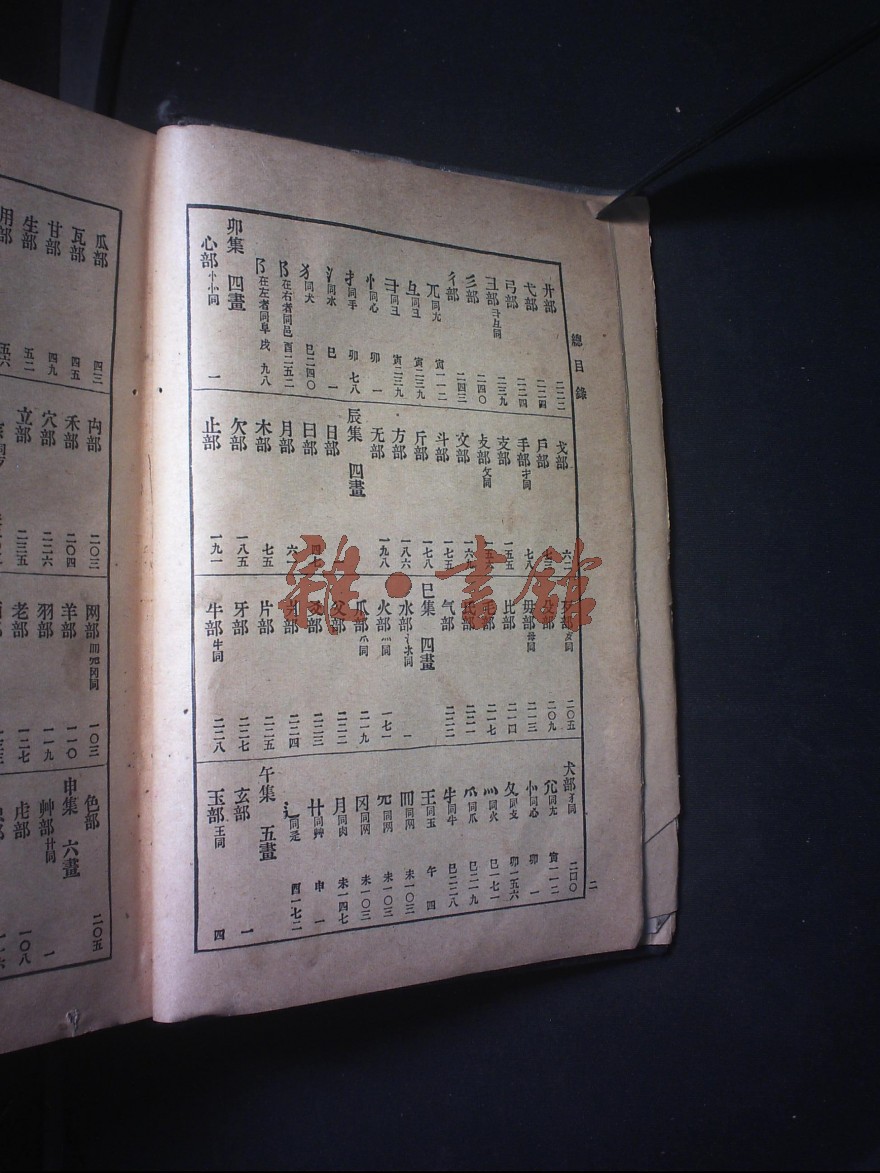 總目錄
二
廾部 二二二
弋部 二二四
弓部 二二四
彐部彑同 二三九
彡部 二四〇
彳部 二四三
兀同尢 寅一一二
彑同彐 寅二三九
彐同彐 寅二三九
忄同心 卯一
扌同手 卯七八
氵同水 巳一
犭同犬 巳二四〇
阝在右者同邑 酉二五二
阝在左者同阜 戌九八
卯集 四畫
心部忄㣺同 一
戈部
戶部
手部扌同 七八
支部 一五五
攴部攵同
文部
斗部 一七五
斤部 一七八
方部 一八六
无部 一九八
辰集 四畫
日部
曰部
月部
木部 七五
欠部 一八五
止部 一九一
歹部歺同 二〇五
殳部 二〇九
毋部母同 二一三
比部 二一〇
毛部 二一七
氏部 二二一
气部 二二二
巳集 四畫
水部氵氺同 一
火部灬同 一七一
爪部爫同 二一九
父部 二二二
爻部 二二三
爿部 二二四
片部 二二五
牙部 二二七
牛部牜同 二二八
犬部犭同 二四〇
尣同尢 寅一一二
㣺同心 卯一
攵同攴 卯一五六
灬同火 巳一七一
爫同爪 巳二一九
牜同牛 巳二二八
王同玉 午四
罒同网 未一〇三
同网 未一〇三
冈同网 未一〇三
月同肉 未一四七
艹同艸 申一
辶同辵 酉一七二
午集 五畫
玄部 一
玉部王同 四
瓜部 四三
瓦部 四五
甘部 四九
生部 五二
用部 五六
禸部 二〇三
禾部 二〇四
穴部 二二六
立部 二三五
网部 一〇三
羊部 一一〇
羽部 一一九
老部 一二七
色部 二〇五
申集 六畫
艸部艹同 一
虍部 一〇八
雜·書館